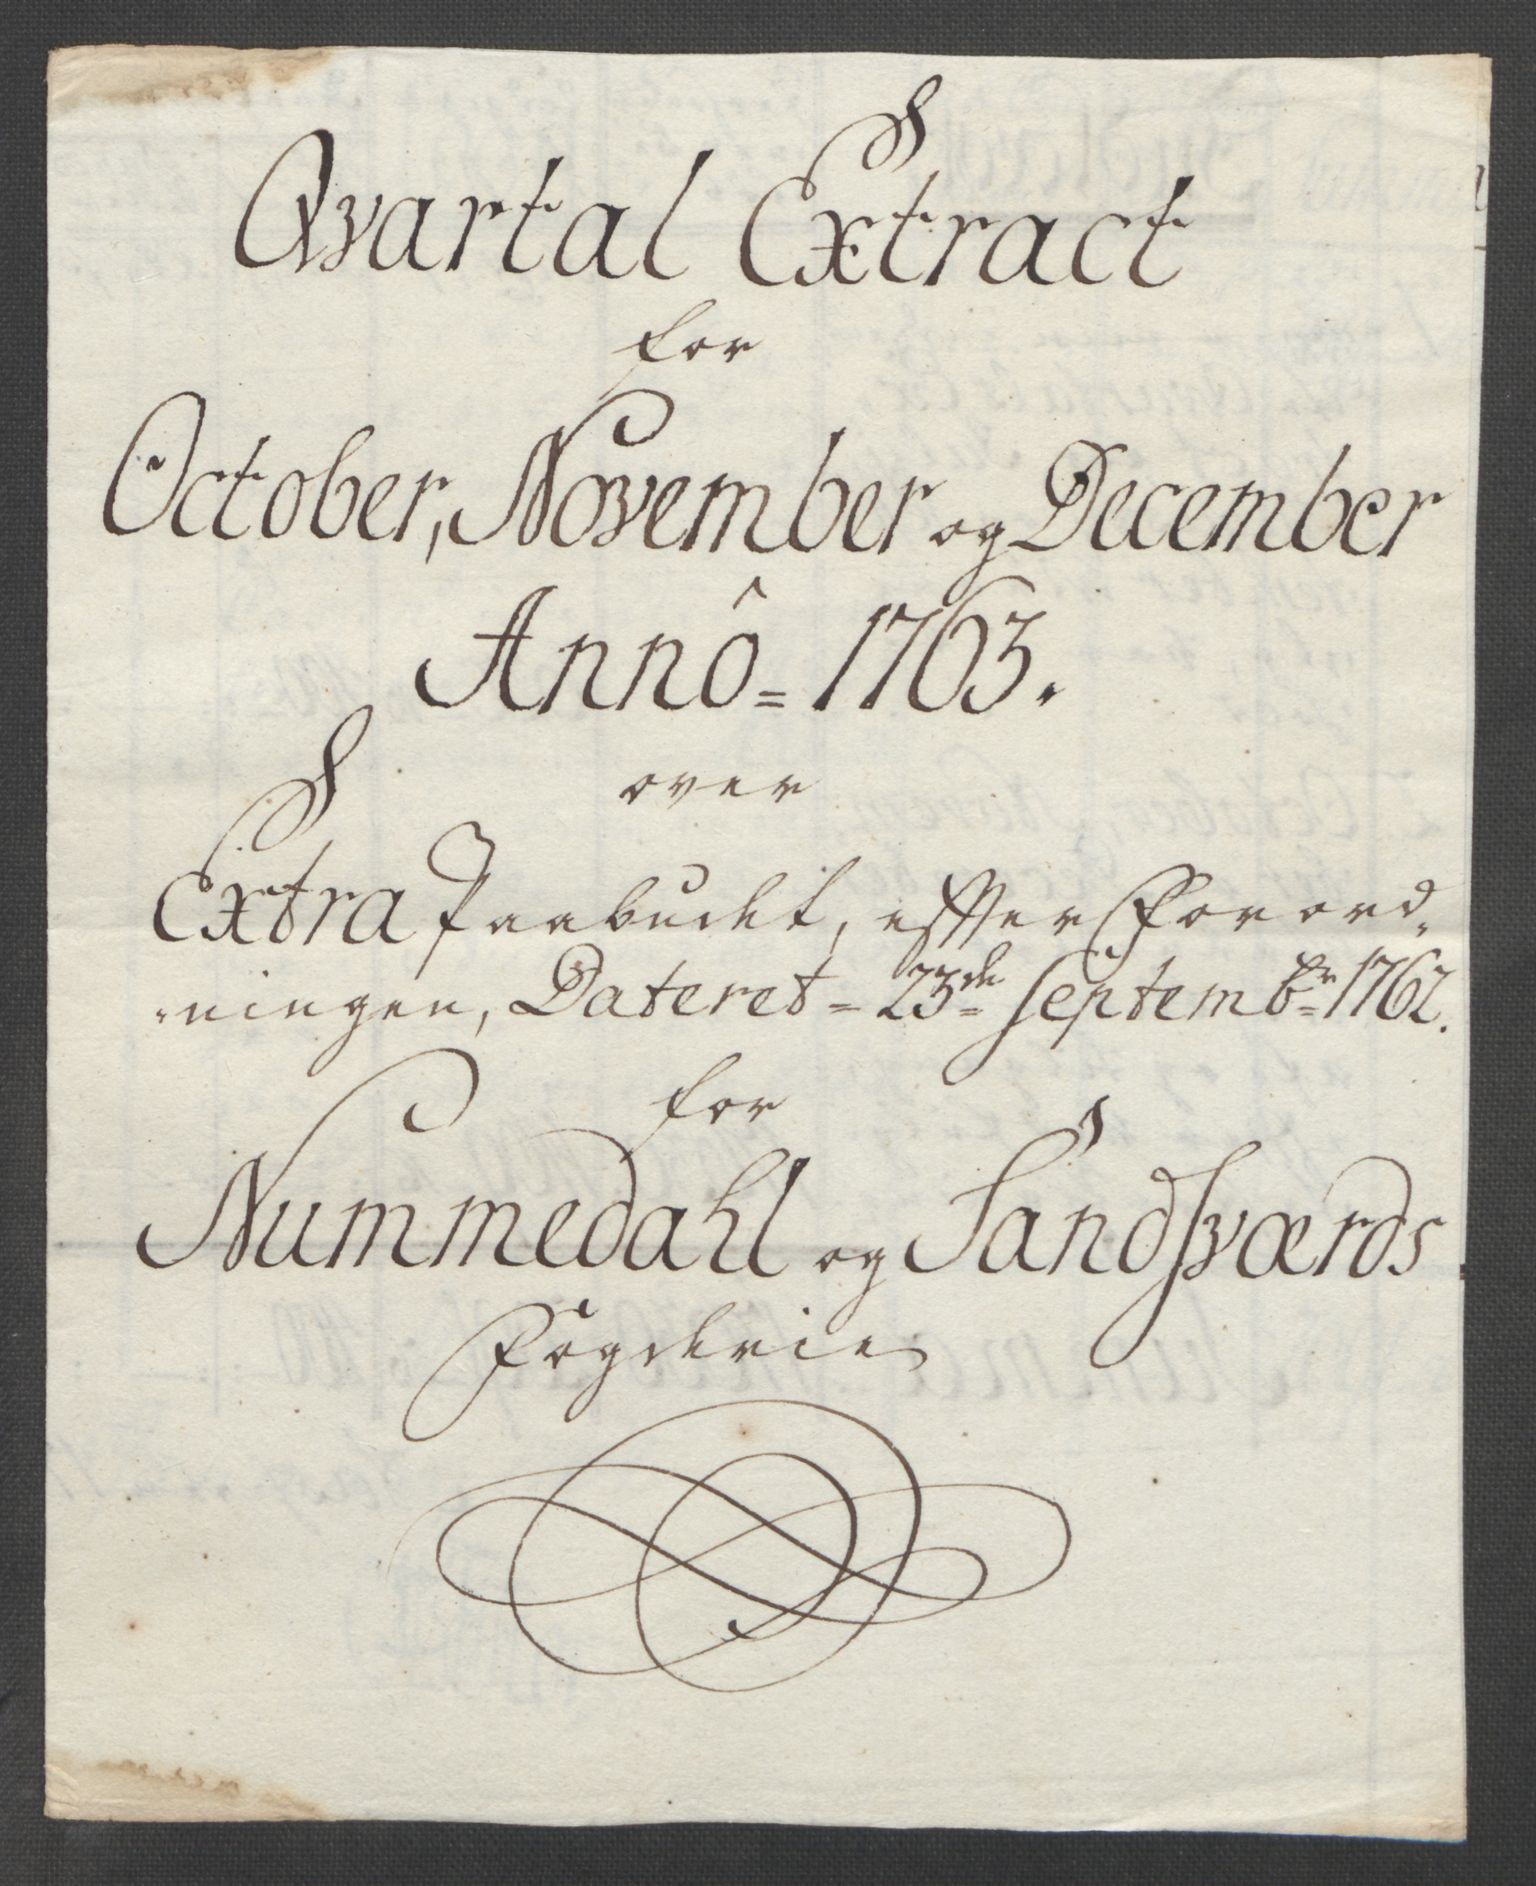 Qvartal Extract
for
October, November og December
Annô = 1763.
over
Extra Paabudet, efter Forord„
„ningen, Dateret = 23de September 1762.
for
Nummedahl og Sandsværds
Fogderie